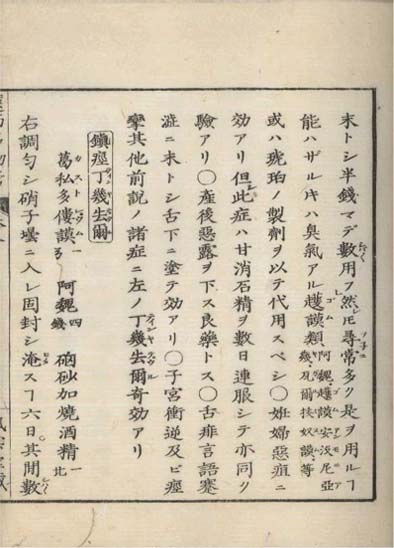 末トシ半錢マデ數用フ然𪜈尋常多ク是ヲ用ルヿ
能ハザル𪜈ハ臭氣アル護謨類阿魏護謨安没尼亞幾瓦爾抜奴謨等
或ハ琥珀ノ製劑ヲ以テ代用スベシ〇妊婦惡疽ニ
効アリ但此症ハ甘消石精ヲ數日連服シテ亦同ク
驗アリ〇産後惡露ヲ下ス良藥トス〇舌痱言語蹇
澁ニ末トシ舌下ニ塗テ効アリ〇子宮衝逆及ビ痙
攣其他前説ノ諸症ニ左ノ丁幾丟爾奇効アリ
鎭痙丁幾丟爾
葛私多僂謨一 阿魏四錢 硇砂加燒酒精一
右調勻シ硝子壜ニ入レ固封シ淹スヿ六日。其間數